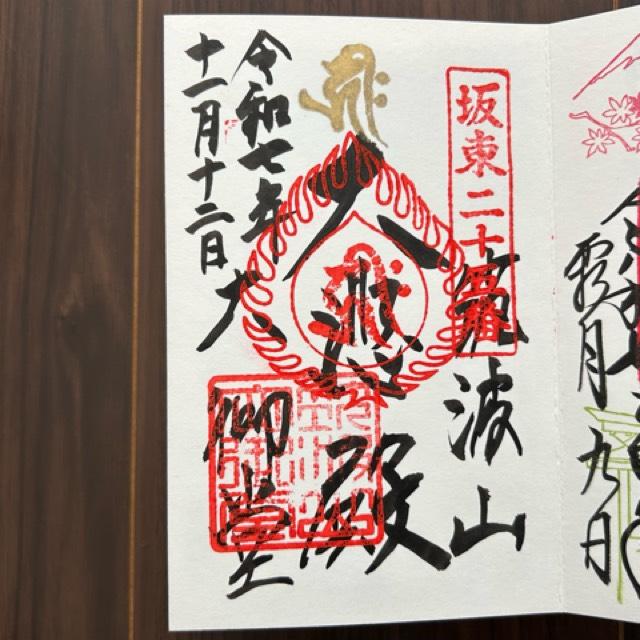 令和七年
霜月九日
坂東二十五番
筑波山
大悲殿
大御堂
令和七年
十一月十二日